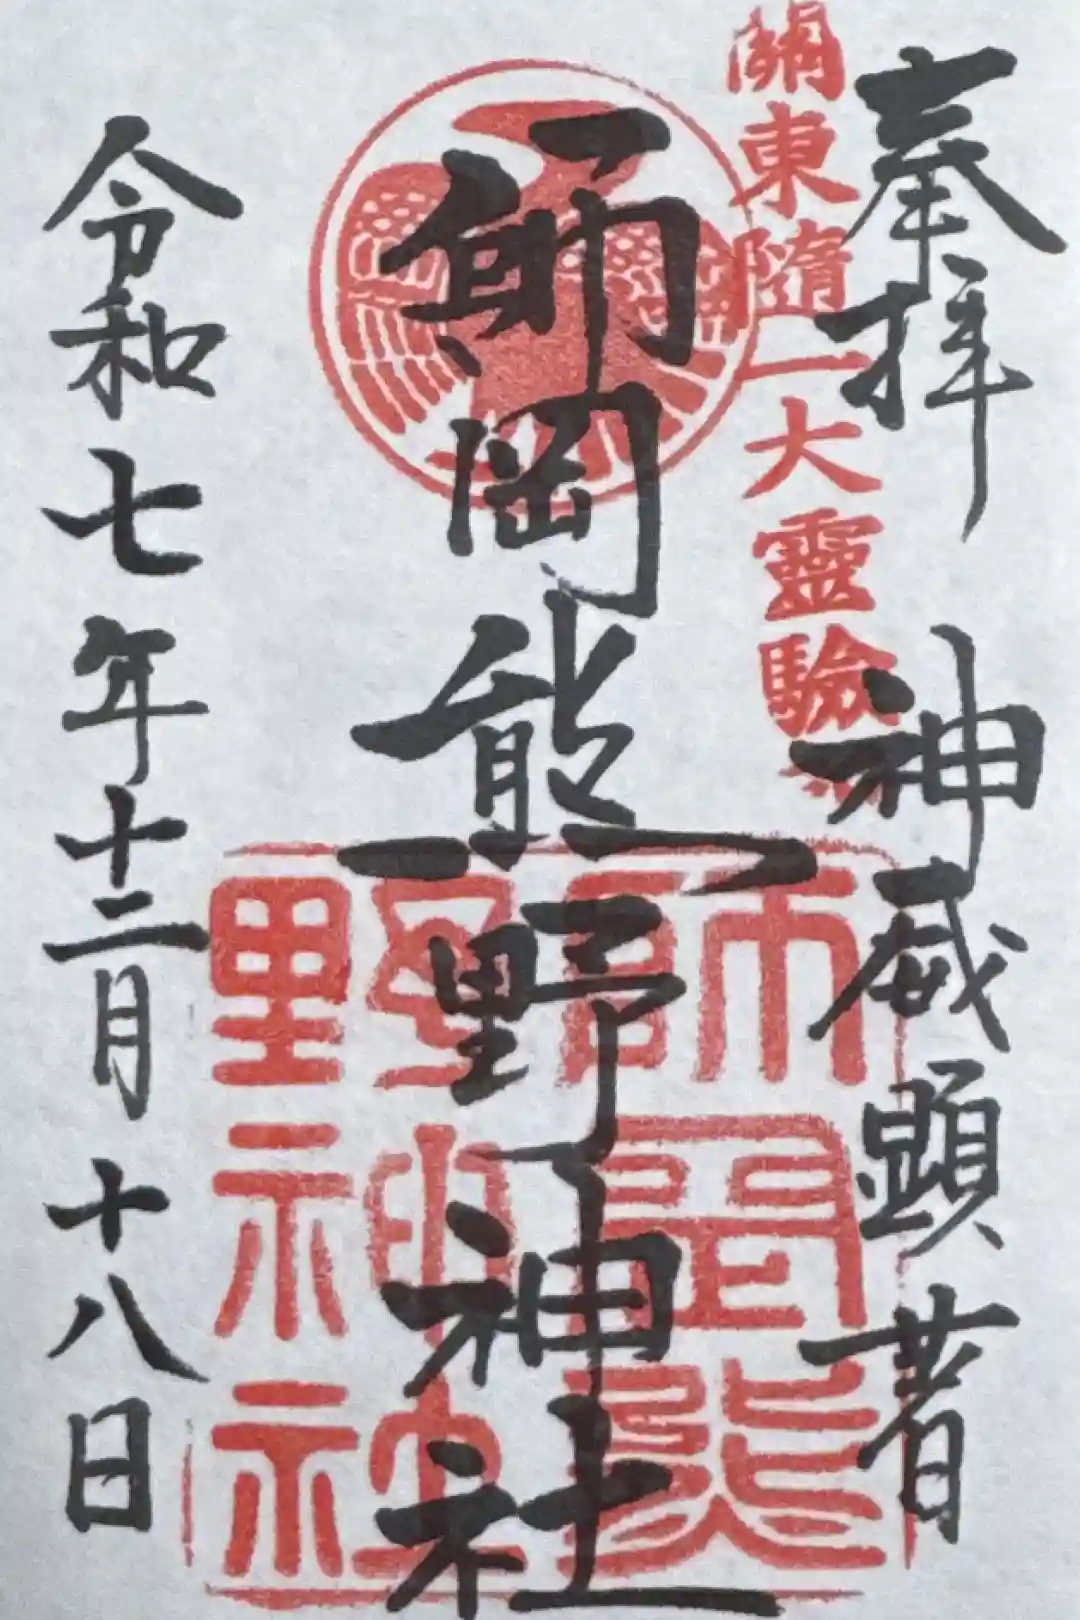 奉拝　神威顕著
關東隨一大靈驗
師岡熊野神社
師岡熊
野神社
令和七年十二月十八日